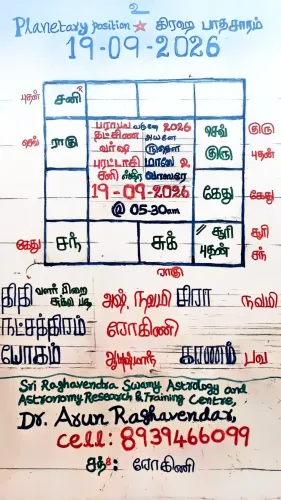 உ
Planetary position ☆ கிரஹ பாதசாரம்
19-09-2026
புதன் சனி
பராபவ வருஷம் 2026
தட்சிண அயனம்
செவ் குரு
ராகு வர்ஷ ருதௌ குரு புதன்
புரட்டாசி மாஸே 2
சனி ஸ்திர வாஸரே கேது கேது
19-09-2026
@ 05-30am
சூரி சூரி
கேது சந் சுக் புதன் சந்
ராகு
திதி வளர் பிறை அஷ், நவமி சிரா நவமி
நட்சத்திரம் ரோகிணி
யோகம் ஆயுஷ்மான் காணம் பவ
Sri Raghavendra Swamy Astrology and
Astronomy Research & Training Centre,
Dr. Arun Raghavendar,
cell: 8939466099
சந் 8: ரோகிணி